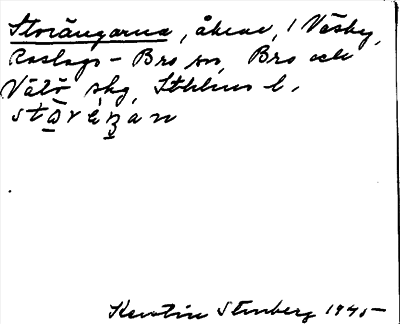 Storängarna, åkrar, i Väsby,
Roslags-Bro sn, Bro och
Vätö skg, Sthlms l.
Kerstin Stenberg 1945